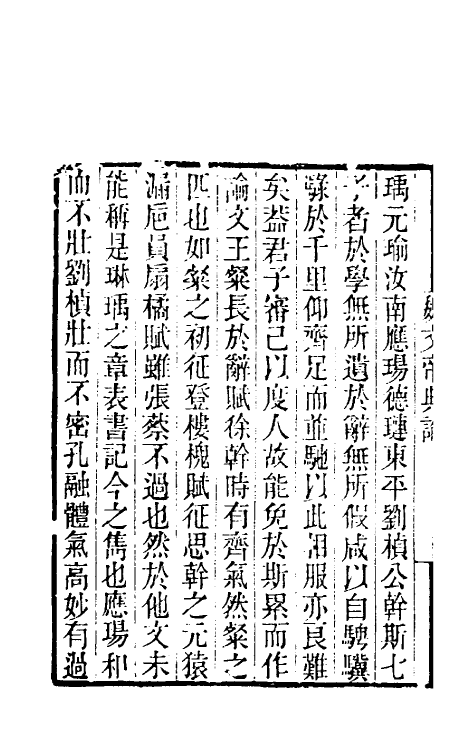 魏文帝典論
瑀元瑜汝南應瑒德璉東平劉楨公幹斯七
子者於學無所遺於辭無所假咸以自騁驥
騄於千里仰齊足而並馳以此相服亦良難
矣蓋君子審己以度人故能免於斯累而作
論文王粲長於辭賦徐幹時有齊氣然粲之
匹也如粲之初征登樓槐賦征思幹之元猿
漏卮員扇橘賦雖張蔡不過也然於他文未
能稱是琳瑀之章表書記今之雋也應瑒和
而不壯劉楨壯而不密孔融體氣高妙有過